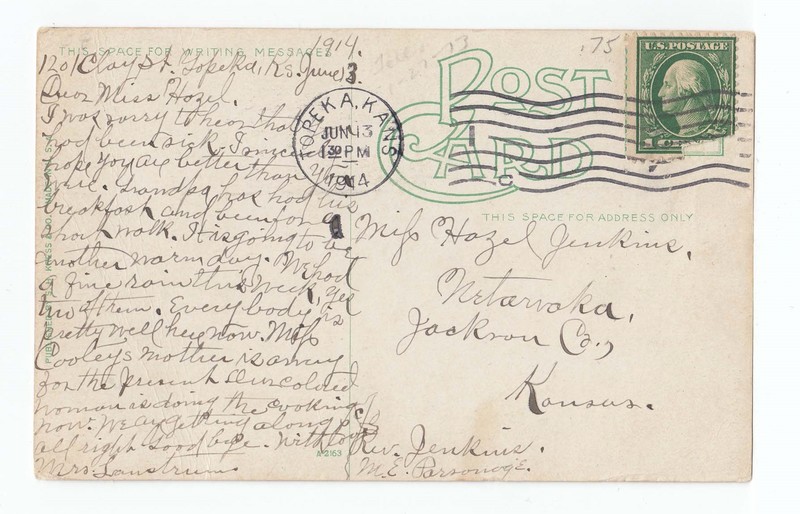 1914.
THIS SPACE FOR WRITING MESSAGES
1201 Clay St. Topeka, Ks. June 13.
Dear Miss Hazel.
I was sorry to hear that
had been sick. I
hope you are better than
me. Grandpa has had his
breakfast and been for a
short walk. It is going to be
another warm day. We had
a fine rain this week, yes
two of them. Everybody is
pretty well here now. Miss
Cooleys mother is away
for the present. Our colored
woman is doing the cooking
now. We are getting along
all right. Good bye. With love
Mrs.
A-2163
TOPEKA, KANS
JUN 13
130 PM
1914
POST
CARD
.75
U.S. POSTAGE
THIS SPACE FOR ADDRESS ONLY
Miss Hazel Jenkins,
Netawaka,
Jackson Co.,
Kansas.
c/o
Rev. Jenkins.
M.E. Parsonage.